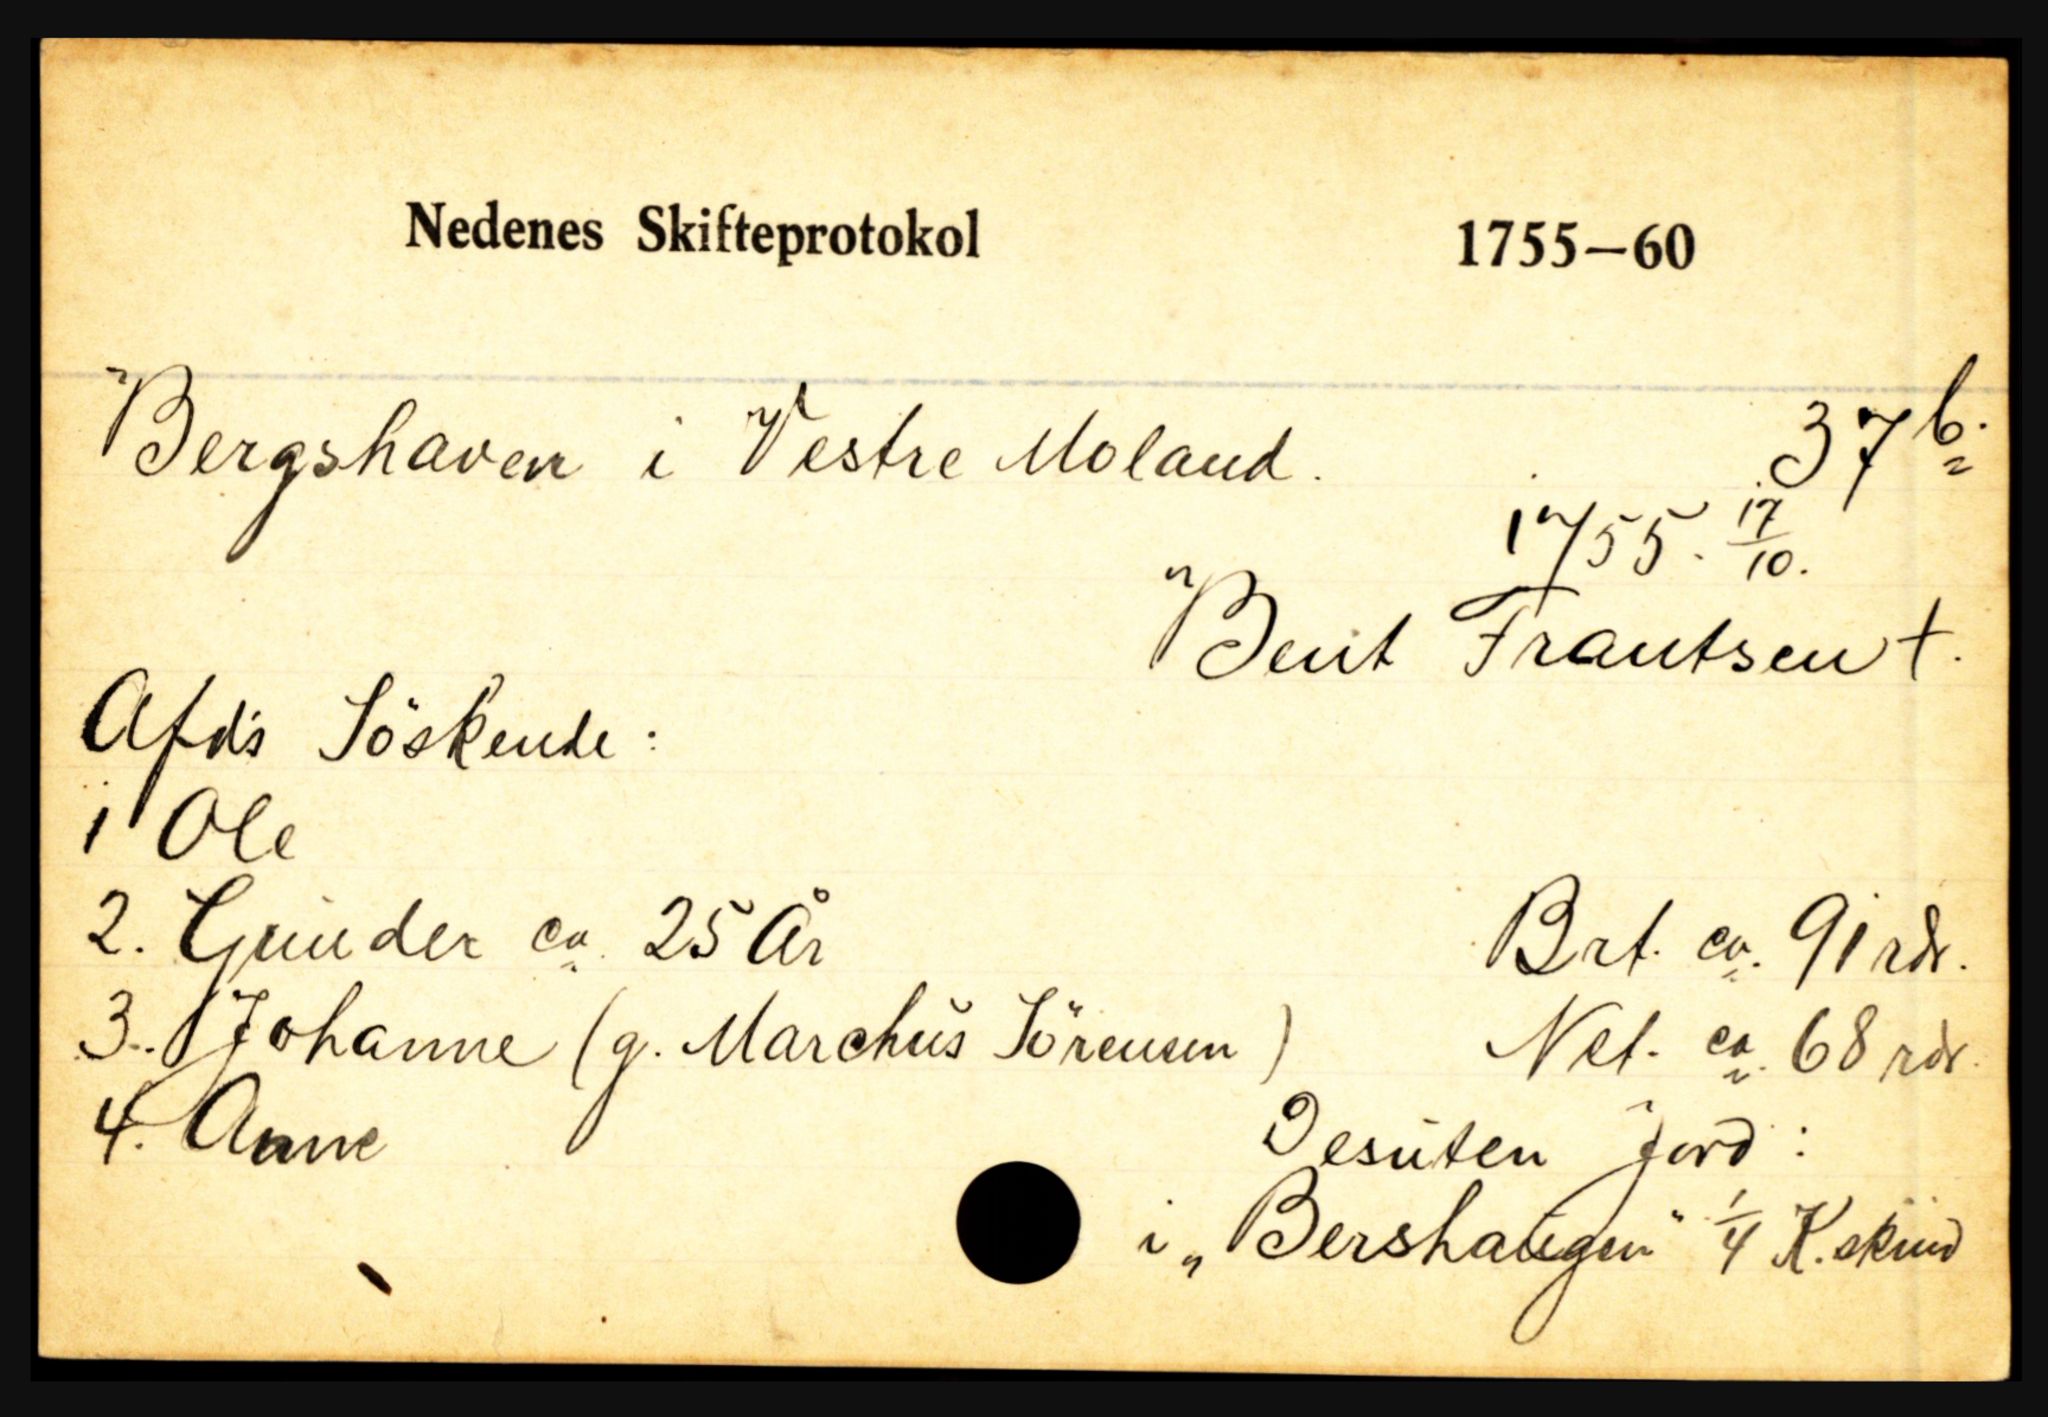 Nedenes Skifteprotokol 1755—60
Bergshaven i Vestre Moland. 37 b.
1755. 17/10.
Bent Frantsen †.
Afd's Söskende:
1 Ole
2. Gunder ca. 25 År
Brt. ca. 91 rdr.
3. Johanne (g. Marchus Sörensen)
Net. ca. 68 rdr.
4. Anne
Desuten jord:
i „Bershaugen" 1/4 K. skind